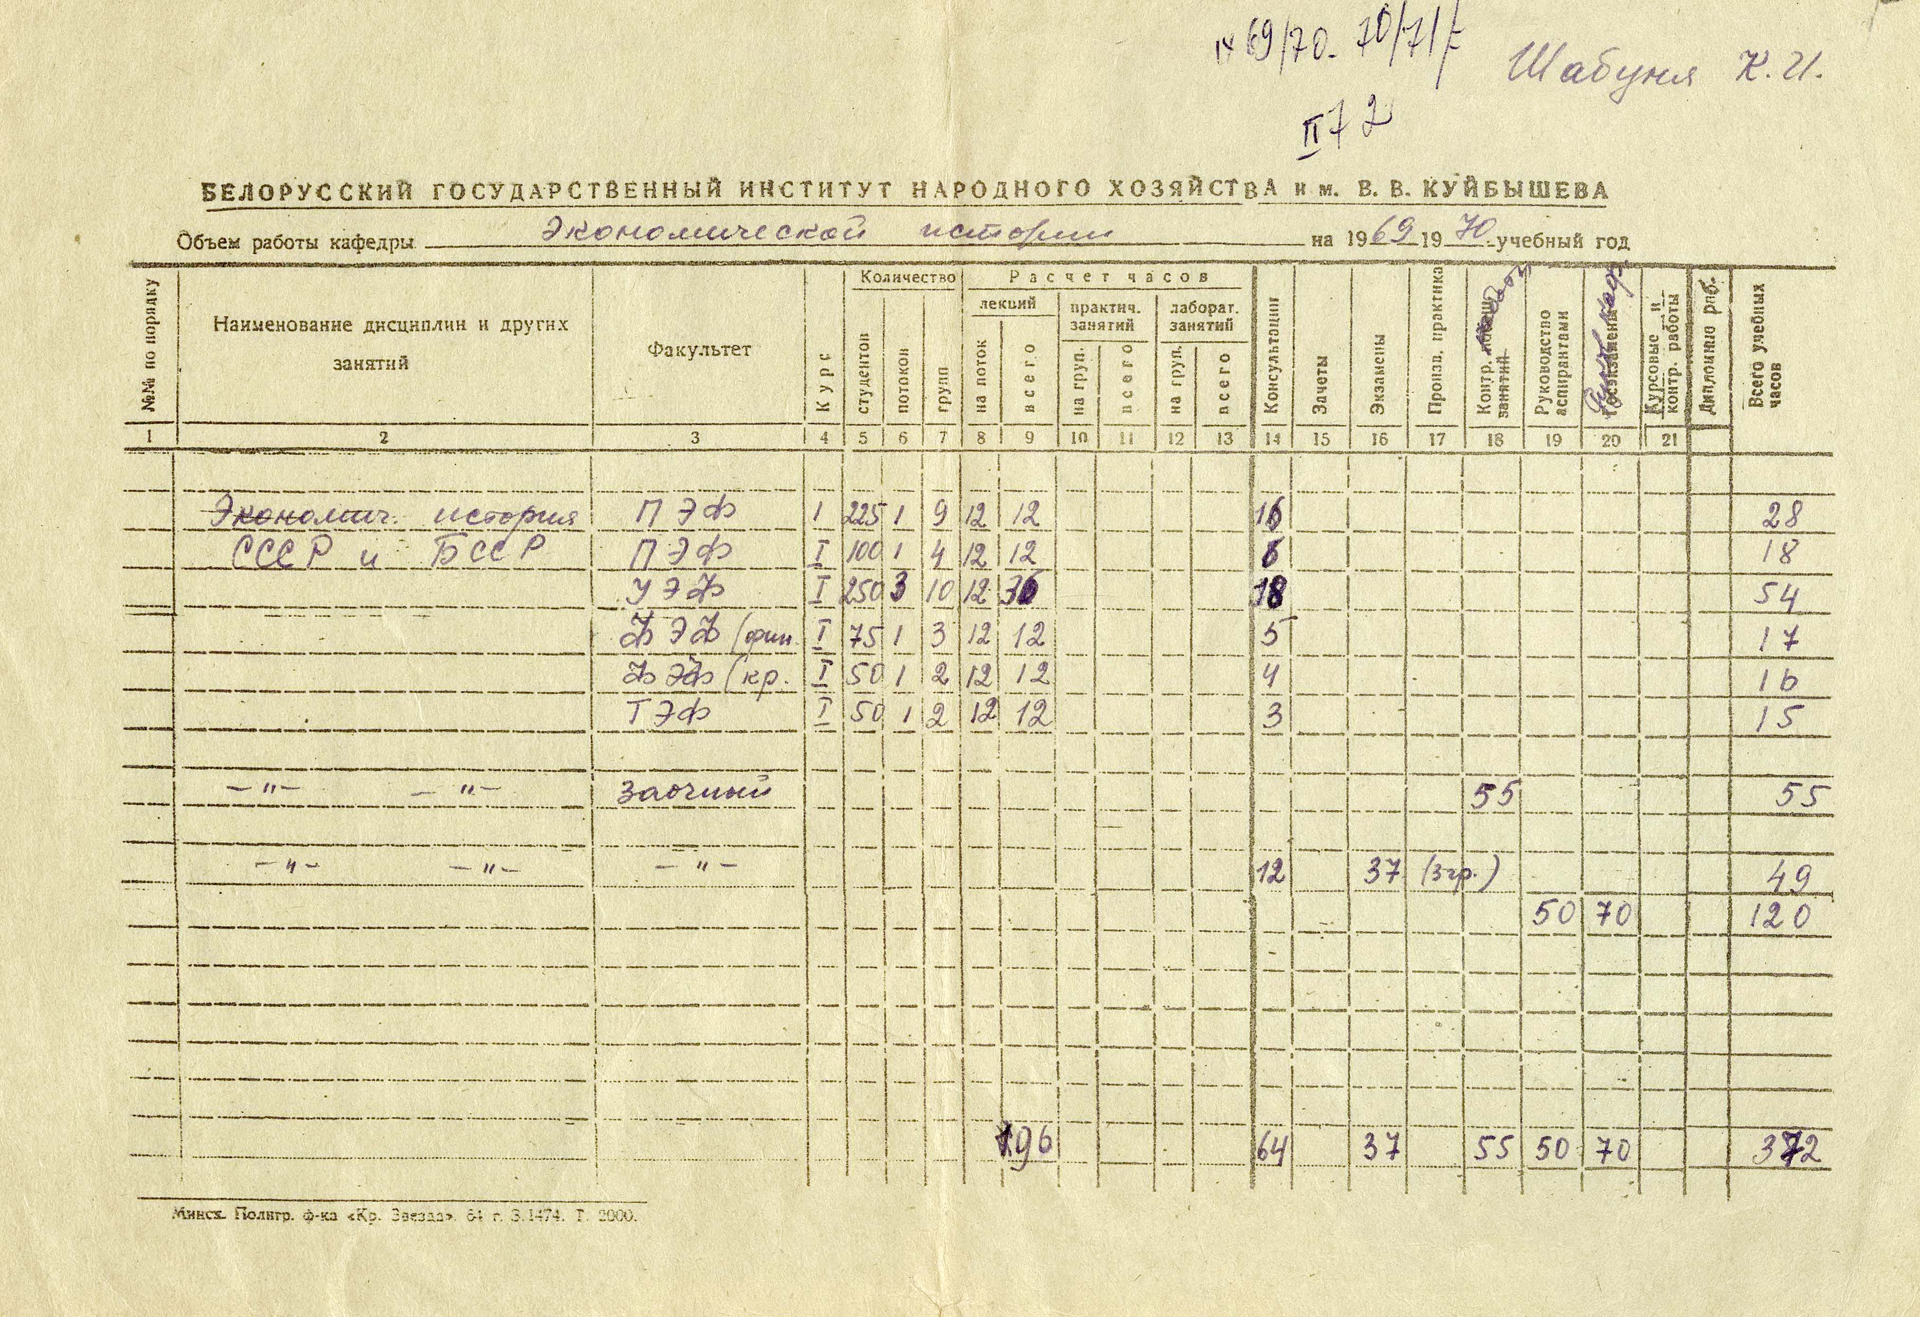 69/70. 70/71
Шабуня К.И.
II 72
БЕЛОРУССКИЙ ГОСУДАРСТВЕННЫЙ ИНСТИТУТ НАРОДНОГО ХОЗЯЙСТВА им. В. В. КУЙБЫШЕВА
Объем работы кафедры Экономической истории на 1969 1970 учебный год
№№ по порядку
Наименование дисциплин и других занятий
Факультет
Курс
Количество
студентов
потоков
групп
Расчет часов
лекций
на поток
всего
практич. занятий
на груп.
всего
лаборат. занятий
на груп.
всего
Консультации
Зачеты
Экзамены
Произв. практика
Контр. занятий
Руководство аспирантами
Госэкзамены
Курсовые и контр. работы
Дипломные раб.
Всего учебных часов
1 2 3 4 5 6 7 8 9 10 11 12 13 14 15 16 17 18 19 20 21
Экономич. история ПЭФ I 225 1 9 12 12 16 28
СССР и БССР ПЭФ I 100 1 4 12 12 6 18
УЭФ I 250 3 10 12 36 18 54
ФЭФ (фин. I 75 1 3 12 12 5 17
ФЭФ (кр. I 50 1 2 12 12 4 16
ТЭФ I 50 1 2 12 12 3 15
–"– –"– Заочный 55 55
–"– –"– –"– 12 37 (3 гр.) 49
50 70 120
96 64 37 55 50 70 372
Минск. Полигр. ф-ка «Кр. Звезда». 64 г. З. 1474. Т. 2000.